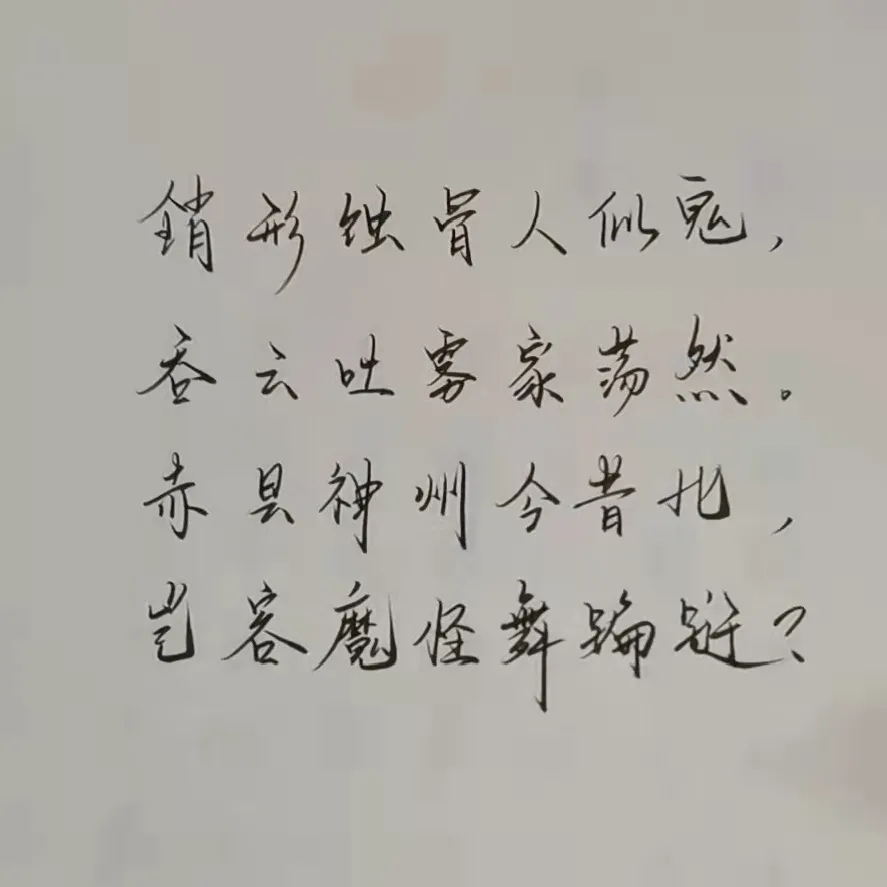 銷形蚀骨人似鬼，
吞云吐雾家荡然。
赤县神州今昔比，
岂容魔怪舞翩跹？